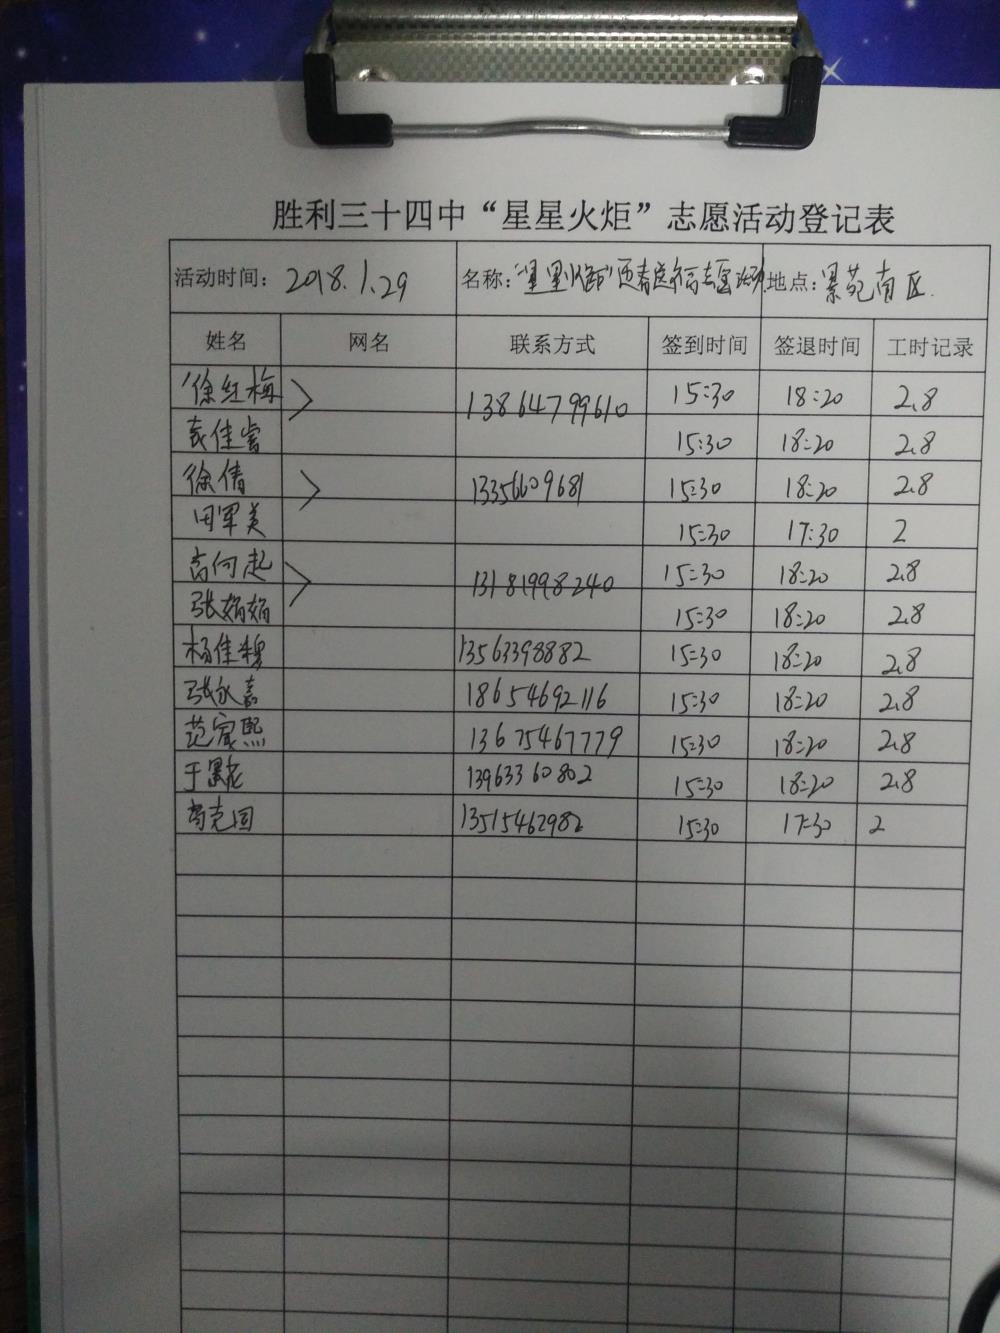 胜利三十四中“星星火炬”志愿活动登记表
活动时间：2018.1.29 名称：“星星火炬”迎春送福志愿活动 地点：景苑南区.
姓名 网名 联系方式 签到时间 签退时间 工时记录
徐红梅 13864799610 15:30 18:20 2.8
袁佳 15:30 18:20 2.8
徐倩 13356609681 15:30 18:20 2.8
田军美 15:30 17:30 2
高何起 13181998240 15:30 18:20 2.8
张娟娟 15:30 18:20 2.8
杨佳穆 13563398882 15:30 18:20 2.8
张永嘉 18654692116 15:30 18:20 2.8
范宸熙 13675467779 15:30 18:20 2.8
于景龙 13963360802 15:30 18:20 2.8
克国 13515462982 15:30 17:30 2